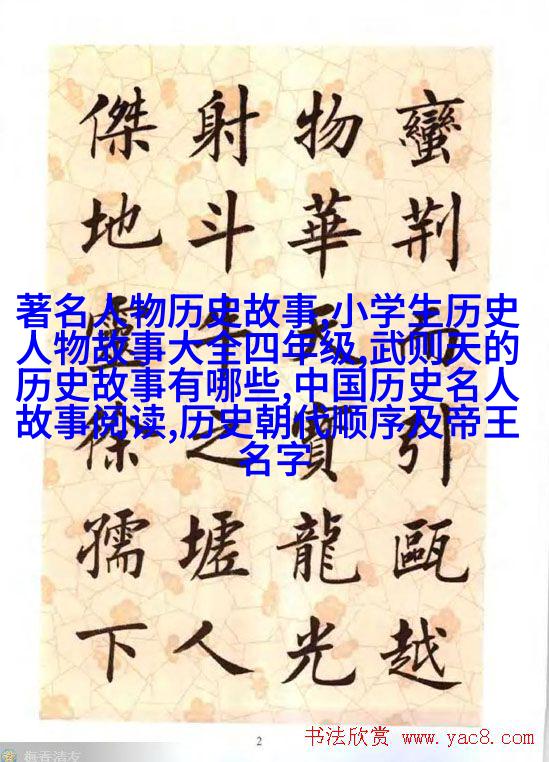 蠻荆而引甌越
物華天寶龍光
射斗牛之墟人
傑地靈徐孺下
著名人物历史故事,小学生历史
人物故事大全四年级,武则天的
历史故事有哪些,中国历史名人
故事阅读,历史朝代顺序及帝王
名字
2
书法欣赏 www.yac8.com